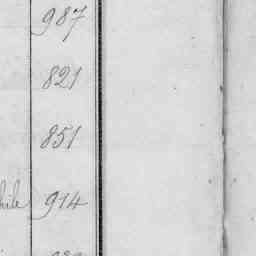 987
821
851
914